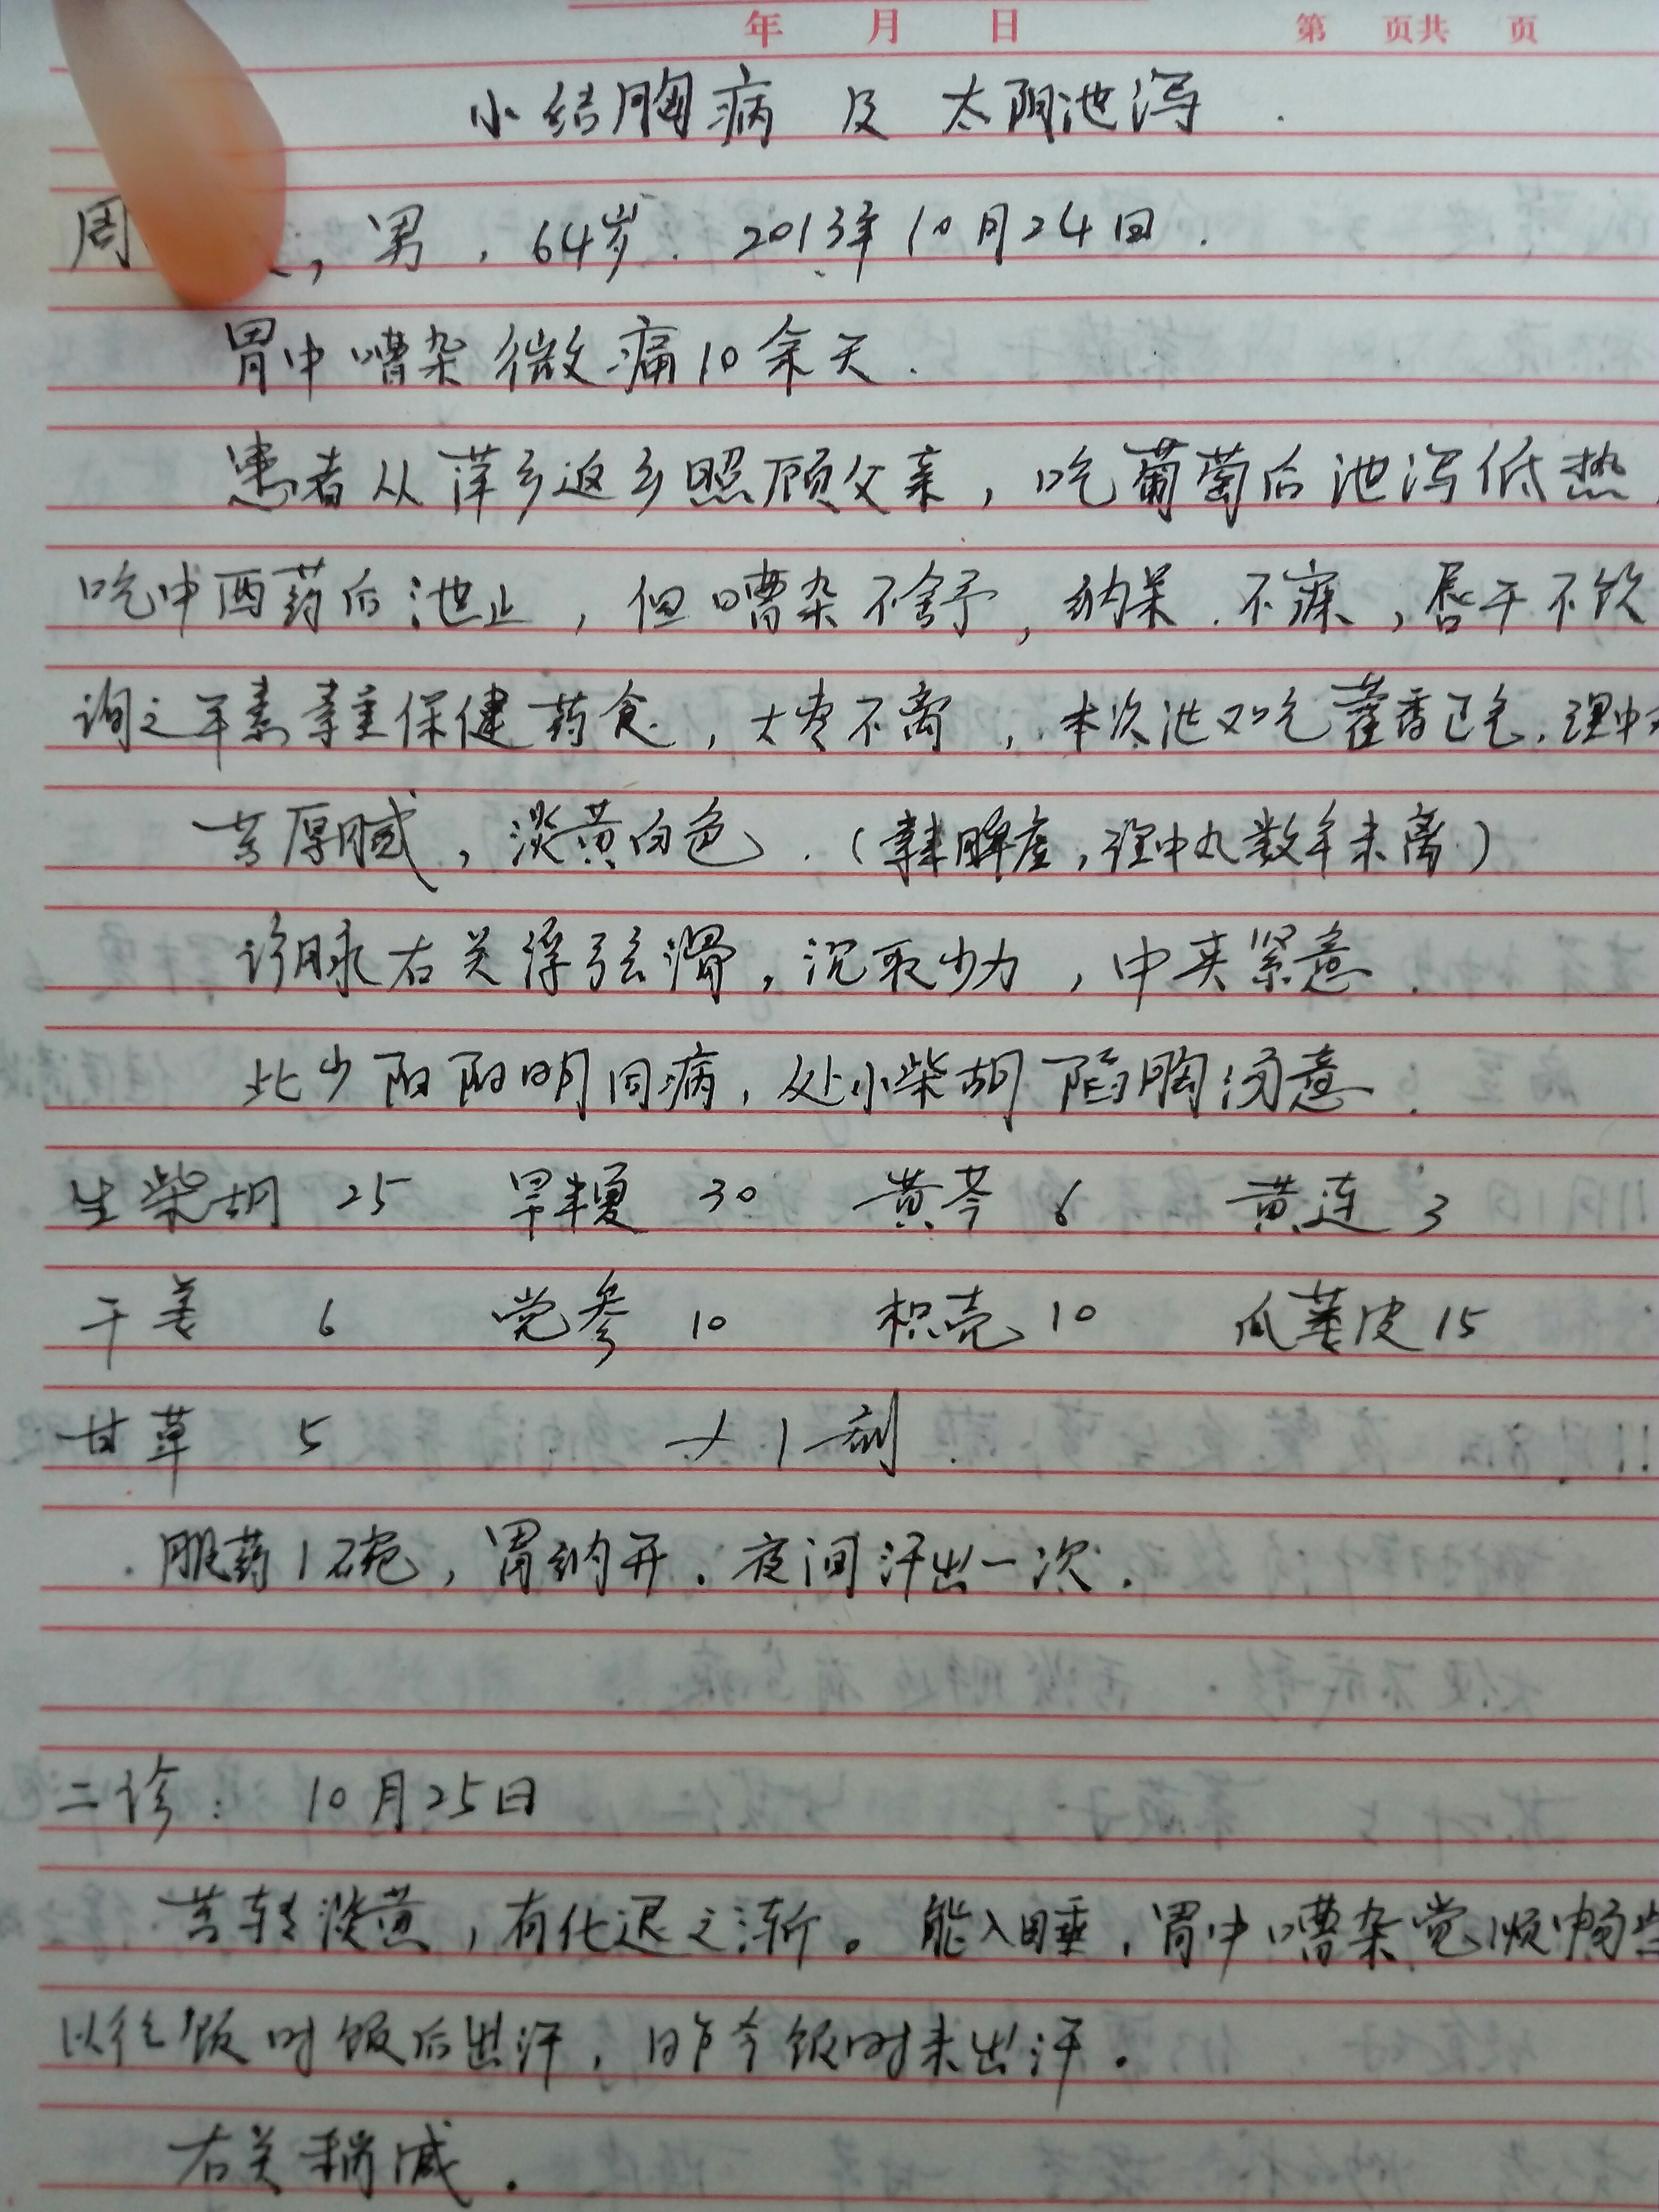 年 月 日 第 页共 页
小结胸病 及 太阴泄泻.
周 , 男, 64岁. 2013年10月24日.
胃中嘈杂微痛10余天.
患者从萍乡返乡照顾父亲,吃葡萄后泄泻低热,
吃中西药后泄止,但嘈杂不舒,纳呆.不寐,唇干不饮
询之平素 重保健药食,大枣不离,本次泄又吃藿香正气.理中
苔厚腻,淡黄白色.( 脾虚,理中丸数年未离)
诊脉右关浮弦滑,沉取少力,中夹紧意.
此少阳阳明同病,处小柴胡陷胸汤意.
生柴胡 25 旱半夏 30 黄芩 6 黄连 3
干姜 6 党参 10 枳壳 10 瓜蒌皮 15
甘草 5 ×1剂.
服药1碗,胃纳开.夜间汗出一次.
二诊: 10月25日
苔转淡黄,有化退之渐。能入睡,胃中嘈杂觉顺畅些
以往饭时饭后出汗,昨今饭时未出汗.
右关稍减.